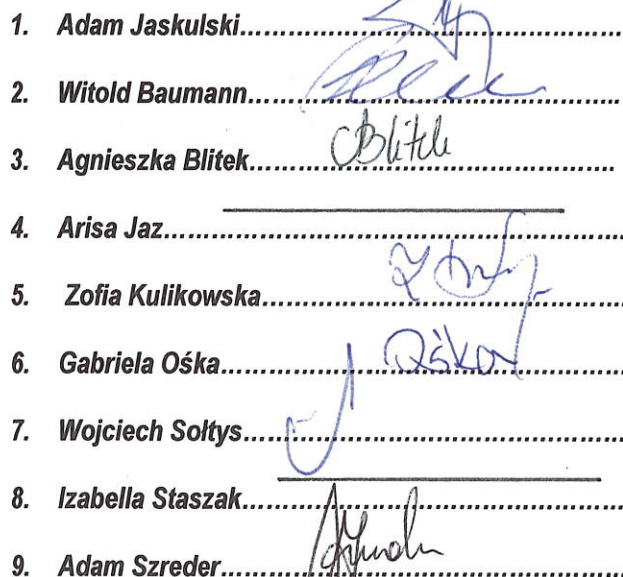 1. Adam Jaskulski
2. Witold Baumann
3. Agnieszka Blitek
Blitek
4. Arisa Jaz
5. Zofia Kulikowska
6. Gabriela Ośka
Ośka
7. Wojciech Sołtys
8. Izabella Staszak
9. Adam Szreder